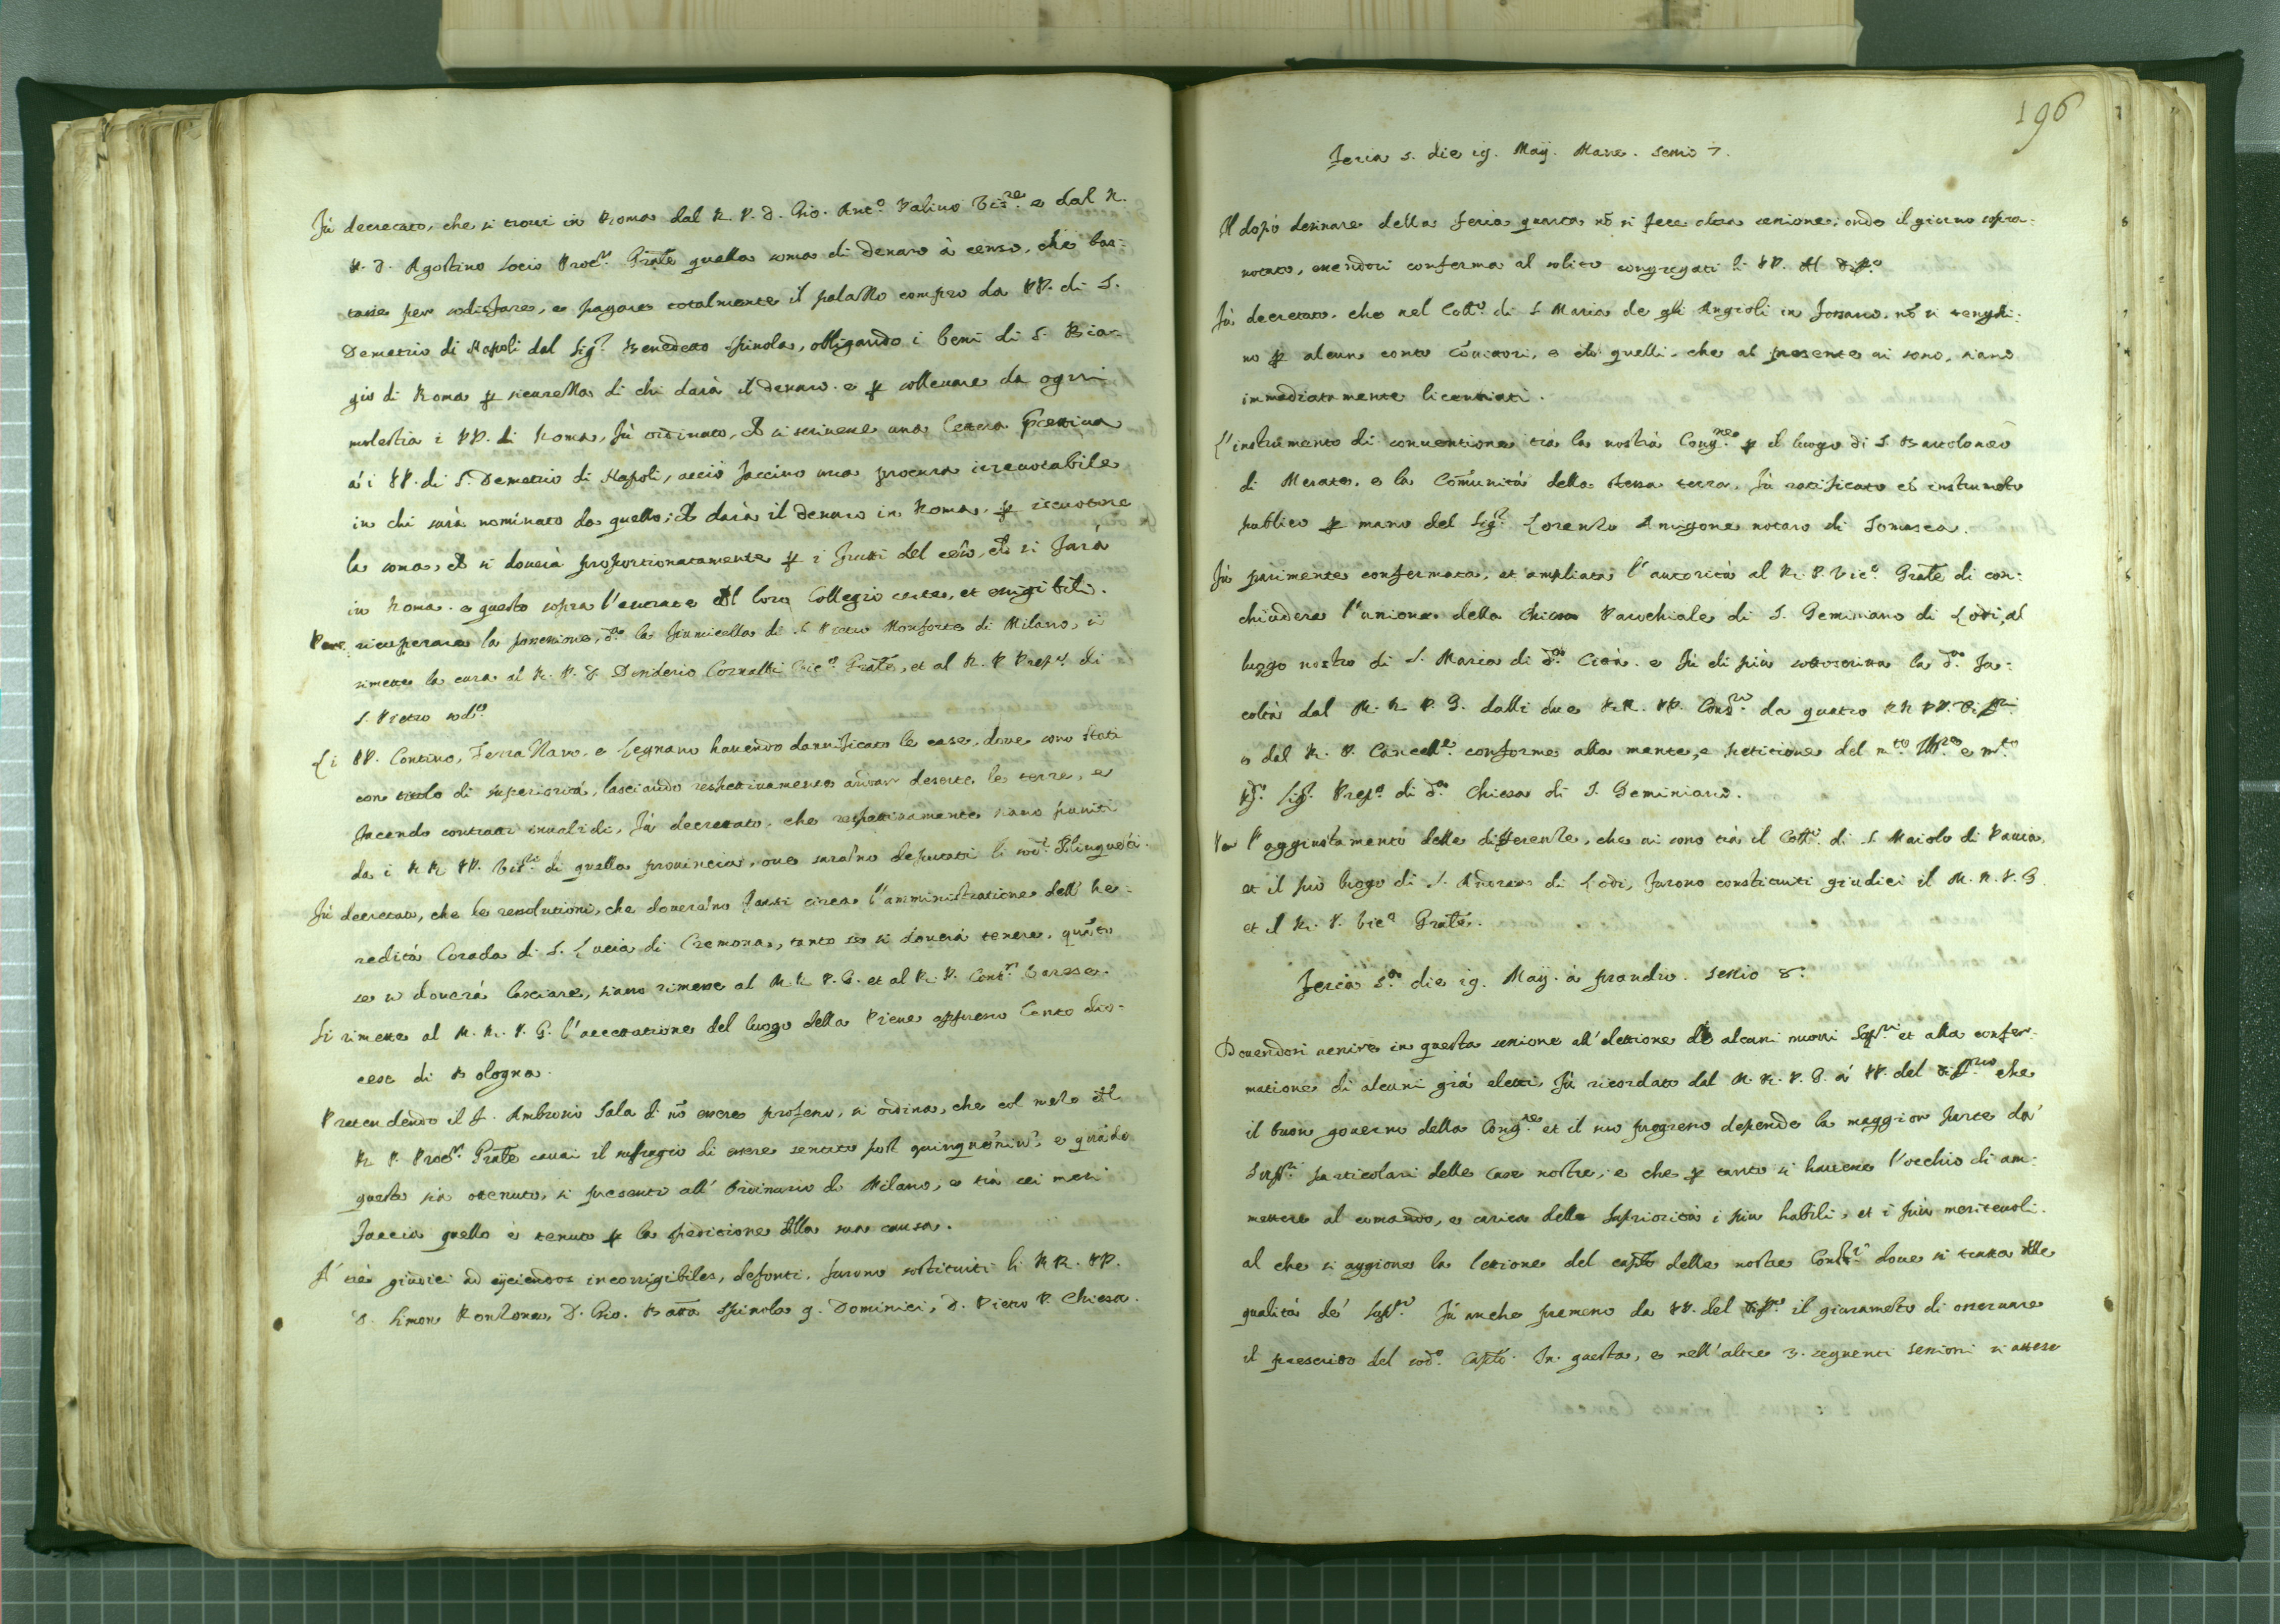 Fù decretato, che si troui in Roma dal R. P. D. Gio. Ant.º Palino Vis.re e dal R.
P. D. Agostino Socio Proc.r Grāle quella soma di denaro à censo, che bas-
tasse per sodisfare, e pagare totalmente il palazzo compro da PP. di S.
Demetrio di Napoli dal Sig.r Benedetto Spinola, obligando i beni di S. Bia-
gio di Roma p sicurezza di chi darà il denaro. e p solleuare da ogni
molestia i PP. di Roma, fù ordinato, ch si scriuesse una lettera precettiua
à i PP. di S. Demetrio di Napoli, acciò faccino una procura irreuocabile
in chi sarà nominato da quello, ch darà il denaro in Roma, p riscuotere
la soma, ch si douerà proportionatamente p i frutti del cēso, ch si farà
in Roma. e questo sopra l'entrate del loro Collegio certe, et esigibili.
Per ricuperare la possessione, d.a la fiumicella di S. Pietro Monforte di Milano, si
rimette la cura al R. P. D. Desiderio Cornalti Vic.º Grāle, et al R. P. Prep.to di
S. Pietro sod.º
Li PP. Contino, Terra Nano, e Legnano hauendo dannificato le case, doue sono stati
con titolo di superiorità, lasciando respettiuamente andar deserte le terre, e
facendo contratti inualidi, fù decretato, che respettiuamente siano puniti
da i RR. PP. Vis.ri di quella prouincia, oue sarāno deputati li sod.i delinquēti.
Fù decretato, che le resolutioni, che douerāno farsi circa l'amministratione dell' he-
redità Corada di S. Lucia di Cremona, tanto se si douerà tenere, quāto
se si douerà lasciare, siano rimesse al M. R. P. G. et al R. P. Cons.re Varese.
Si rimette al M. R. P. G. l'accettatione del luogo della Pieue appresso Cento dio-
cese di Bologna.
Pretendendo il F. Ambrosio Sala di nō essere professo, si ordina, che col mezo del
R. P. Proc.r Grāle caui il suffragio di essere sentito post quinquēniū, e quādo
questo sia ottenuto, si presenti all' Ordinario di Milano, e trà sei mesi
faccia quello è tenuto p la speditione della sua causa.
A' trè giudici ad eijciendos incorrigibiles, defonti, furono sostituiti li RR. PP.
D. Simon Ronzone, D. Gio. Batta Spinola q. Dominici, D. Pietro P. Chiesa.
196
Feria 5. die 19. Maij. Mane. Sessio 7.
Il dopò desinare della feria quarta nō si fece altra sessione; onde il giorno sopra-
notato, essendosi conforme al solito congregati li PP. del Diff.o
Fù decretato, che nel Coll.o di S. Maria de gli Angioli in Fossano, nō si tenghi-
no p alcun conto Cōuittori, e ch quelli, che al presente ui sono, siano
immediatamente licentiati.
L'instrumento di conuentione trà la nostra Cong.ne p il luogo di S. Bartolomeo
di Merate, e la Cōmunità della stessa terra, fù ratificato cō instrumēto
publico p mano del Sig.r Lorenzo Amigone notaro di Somasca.
Fù parimente confermata, et ampliata l'autorità al R. P. Vic.º Grāle di con-
chiudere l'unione della Chiesa Parochiale di S. Geminiano di Lodi, al
luogo nostro di S. Maria di d.a Città. e fù di più sottoscritta la d.a fa-
coltà dal M. R. P. G. dalli due RR. PP. Cons.ri da quatro RR. PP. Diff.ri
e dal R. P. Cancell.e conforme alla mente, e petitione del m.to Ill.re e m.to
R.do Sig.r Prep.o di d.a Chiesa di S. Geminiano.
Per l'aggiustamento delle differenze, che ui sono trà il Coll.o di S. Maiolo di Pauia,
et il pio luogo di S. Andrea di Lodi, furono constituiti giudici il M. R. P. G.
et il R. P. Vic.º Grāle.
Feria 5.a die 19. Maij. à prandio. Sessio 8.
Douendosi uenire in questa sessione all' elettione di alcuni nuoui Sup.ri et alla confer-
matione di alcuni già eletti, fù ricordato dal M. R. P. G. à PP. del Diff.rio che
il buon gouerno della Cong.ne et il suo progresso depende la maggior parte da'
Sup.ri particolari delle Case nostre, e che p tanto si hauesse l'occhio di am-
mettere al comando, e carica della Supriorità i più habili, et i più meriteuoli.
al che si aggionse la lettione del caplo delle nostre Const.i doue si tratta delle
qualità de' Sup.ri Fù anche premesso da PP. del Diff.o il giuramēto di osseruare
il prescritto del sod.º Caplo. In questa, e nell'altre 3. seguenti sessioni si attese